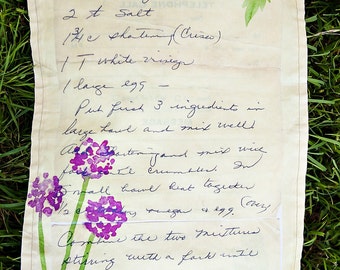 2 t Salt
1 3/4 c shortening (Crisco)
1 T white vinegar
1 large egg –
Put first 3 ingredients in
large bowl and mix well
Add shortening and mix with
fork until crumbles. In
small bowl beat together
vinegar & egg.
Combine the two mixtures
stirring with a fork until